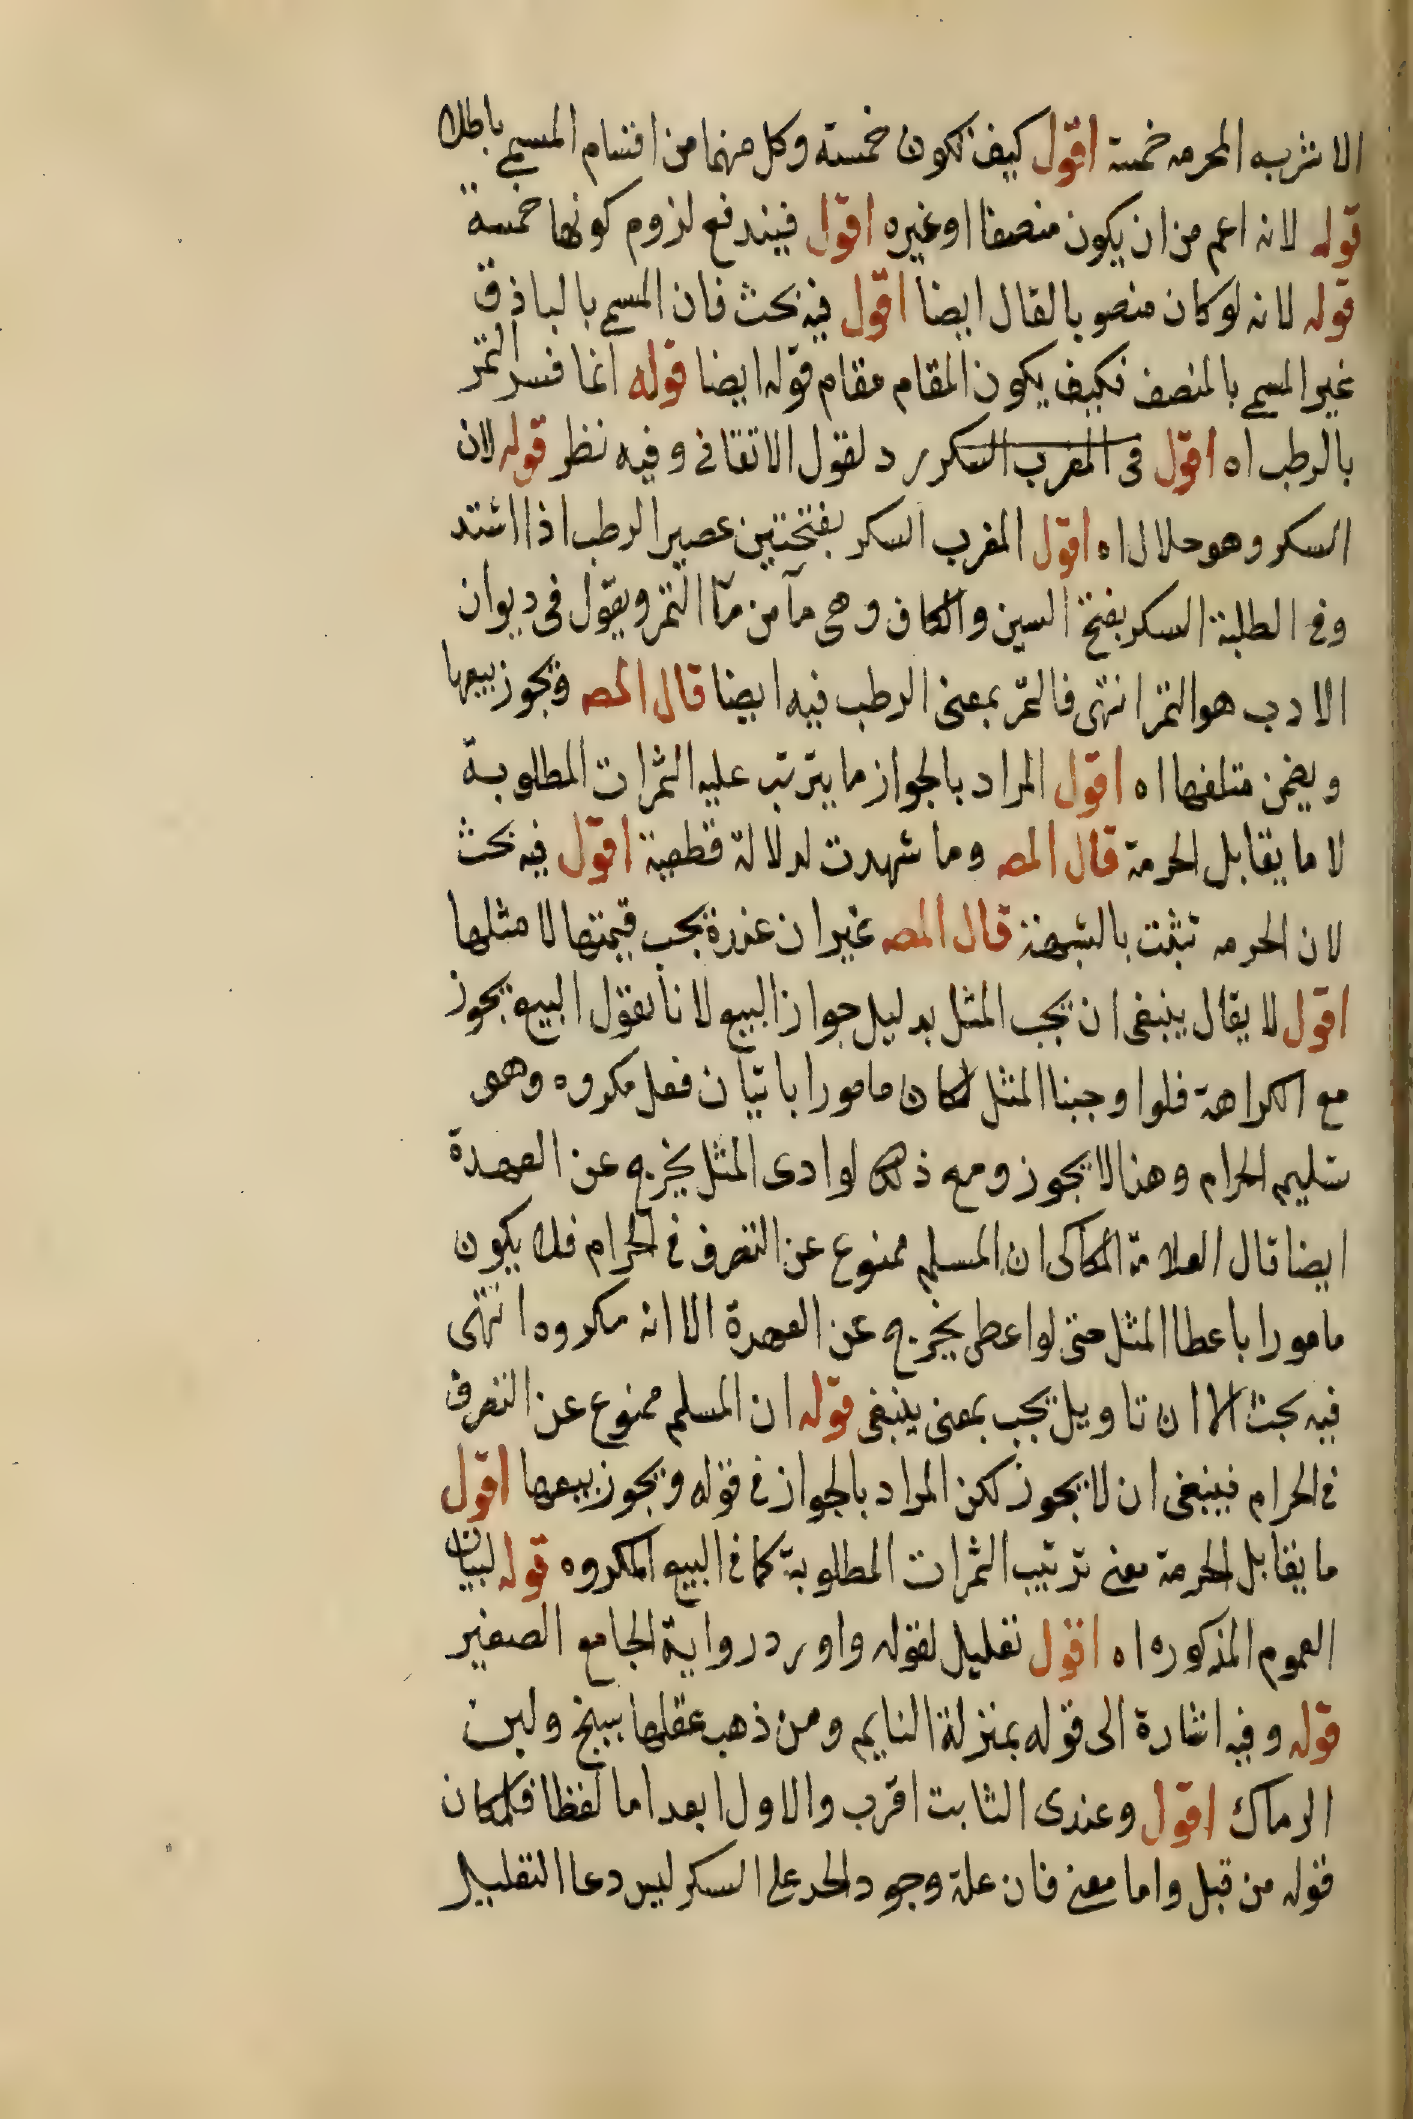 الاشربه المحرمه خمسة اقول كيف تكون خمسة وكل منهما من اقسام المسمى باطلا
قوله لانه اعم من ان يكون منصفا او غيره اقول فيندفع لزوم كونها خمسة
قوله لانه لو كان منصوبا لقال ايضا اقول فيه بحث فان المسمى بالباذق
غير المسمى بالمنصف فكيف يكون المقام مقام قوله ايضا قوله انما فسر التمر
بالرطب اه اقول فى المغرب السكر رد لقول الاتقانى وفيه نظر قوله لان
السكر وهو حلال اه اقول المغرب السكر بفتحتين عصير الرطب اذا اشتد
وفى الطلبة السكر بفتح السين والكاف وهى مآ من مآ التمر ويقول فى ديوان
الادب هو التمر انتهى فالتمر بمعنى الرطب فيه ايضا قال المصـ ويجوز بيعها
ويضمن متلفها اه اقول المراد بالجواز ما يترتب عليه الثمرات المطلوبة
لا ما يقابل الحرمة قال المصـ وما شهدت لدلالة قطعية اقول فيه بحث
لان الحرمه تثبت بالشبهة قال المصـ غير ان عنده يجب قيمتها لا مثلها
اقول لا يقال ينبغى ان يجب المثل بدليل جواز البيع لانا نقول البيع يجوز
مع الكراهة فلو اوجبنا المثل لكان مامورا باتيان فعل مكروه وهو
تسليم الحرام وهنا لا يجوز ومع ذلك لو ادى المثل يخرج عن العهدة
ايضا قال العلامة الكاكى ان المسلم ممنوع عن التصرف فى الحرام فلا يكون
مامورا باعطا المثل حتى لو اعطى يخرج عن العهدة الا انه مكروه انتهى
فيه بحث الا ان تاويل يجب بمعنى ينبغى قوله ان المسلم ممنوع عن التصرف
فى الحرام فينبغى ان لا يجوز لكن المراد بالجواز فى قوله ويجوز بيعها اقول
ما يقابل الحرمة معنى ترتيب الثمرات المطلوبة كما فى البيع المكروه قوله لبيان
العموم المذكور اه اقول تعليل لقوله واورد رواية الجامع الصغير
قوله وفيه اشارة الى قوله بمنزلة النايم ومن ذهب عقلها ببنج ولبن
الرماك اقول وعندى الثابت اقرب والاول ابعد اما لفظا فلمكان
قوله من قبل واما معنى فان علة وجود الحد على السكر ليس دعا التقليل